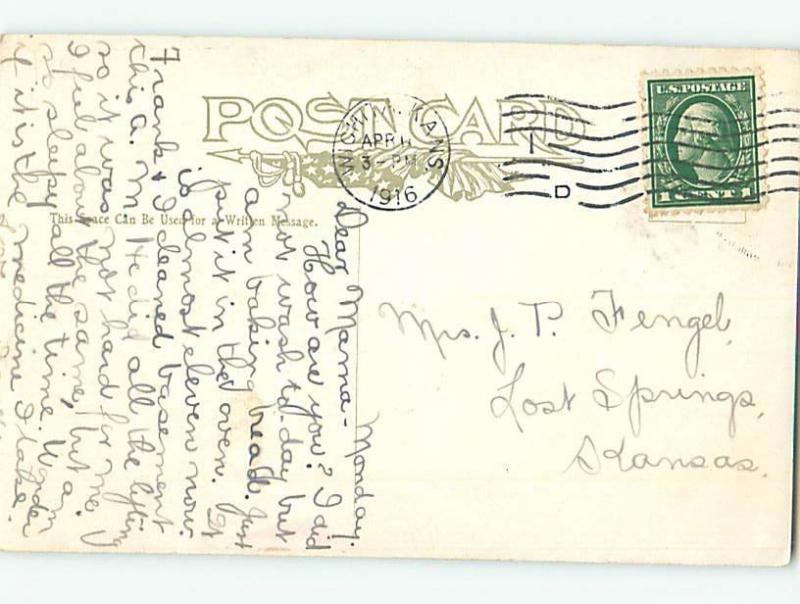 POST CARD
WICHITA, KANS.
APR
3-PM
1916
1
D
U.S. POSTAGE
1 CENT 1
This Space Can Be Used for a Written Message.
Monday.
Dear Mama-
How are you? I did
not wash to-day but
am baking bread. Just
put it in the oven. It
is almost eleven now.
Frank & I cleaned basement
this a.m. He did all the lifting
so it was not hard for me. I
feel about the same, but am
so sleepy all the time. Wonder
if it is the medicine I take.
Mrs. J. P. Fengel,
Lost Springs,
Kansas.